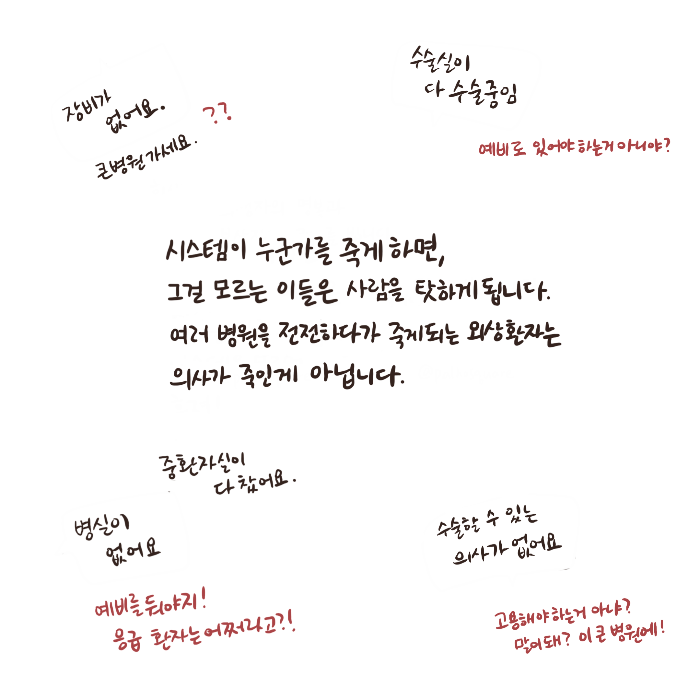 수술실이
다 수술중임
장비가
없어요.
??
큰병원가세요.
예비로 있어야하는거 아니야?
시스템이 누군가를 죽게 하면,
그걸 모르는 이들은 사람을 탓하게 됩니다.
여러 병원을 전전하다가 죽게되는 외상환자는
의사가 죽인게 아닙니다.
중환자실이
다 찼어요.
병실이
없어요
수술할 수 있는
의사가 없어요
예비를 둬야지!
응급 환자는어쩌라고?!
고용해야하는거 아냐?
말이돼? 이 큰 병원에!